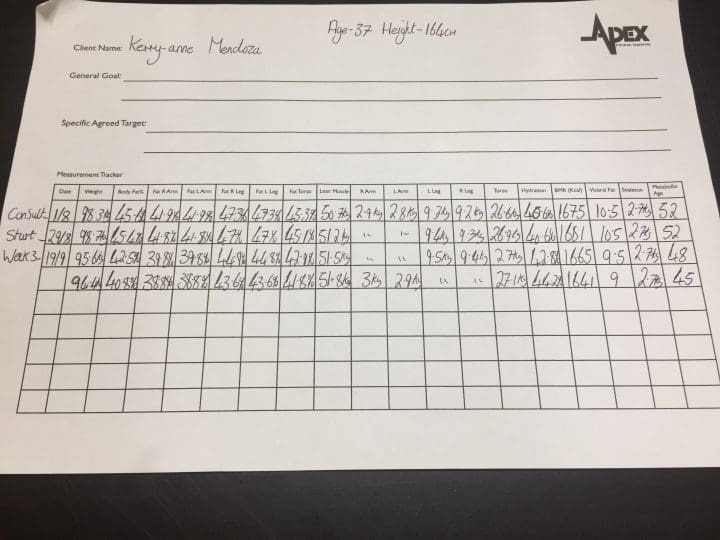 Age-37 Height-164cm
APEX
Client Name: Kerry-anne Mendoza
General Goal:
Specific Agreed Target:
Measurement Tracker
Date Weight Body Fat% Fat R Arm Fat L Arm Fat R Leg Fat L Leg Fat Torso Lean Muscle R Arm L Arm L Leg R Leg Torso Hydration BMR (Kcal) Viceral Fat Skeleton Metabolic Age
Consult 1/8 98.3kg 45.6% 41.9% 41.9% 47.3% 47.3% 45.3% 50.7kg 2.9kg 2.8kg 9.3kg 9.2kg 26.6kg 40.6% 1675 10.5 2.7kg 52
Start - 29/8 98.7kg 45.4% 41.8% 41.8% 47% 47% 45.1% 51.2kg " " 9.4kg 9.3kg 26.9kg 40.6% 1681 10.5 2.7kg 52
Week 3 - 19/9 95.6kg 42.5% 39.8% 39.8% 44.9% 44.8% 42.8% 51.5kg " " 9.5kg 9.4kg 27kg 42.8% 1665 9.5 2.7kg 48
40.8% 38.8% 38.8% 43.6% 43.6% 41.8% 51.8kg 3kg 2.9kg " " 27.1kg 44.2% 1641 9 2.7kg 45